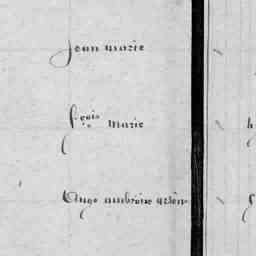 Jean marie
fçois Marie
Ange ambroise